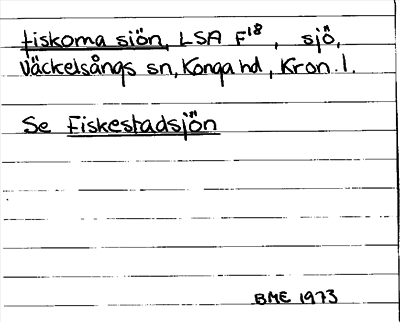 Fiskoma siön, LSA F18, sjö,
Väckelsångs sn, Konga hd, Kron. l.
Se Fiskestadsjön
BME 1973